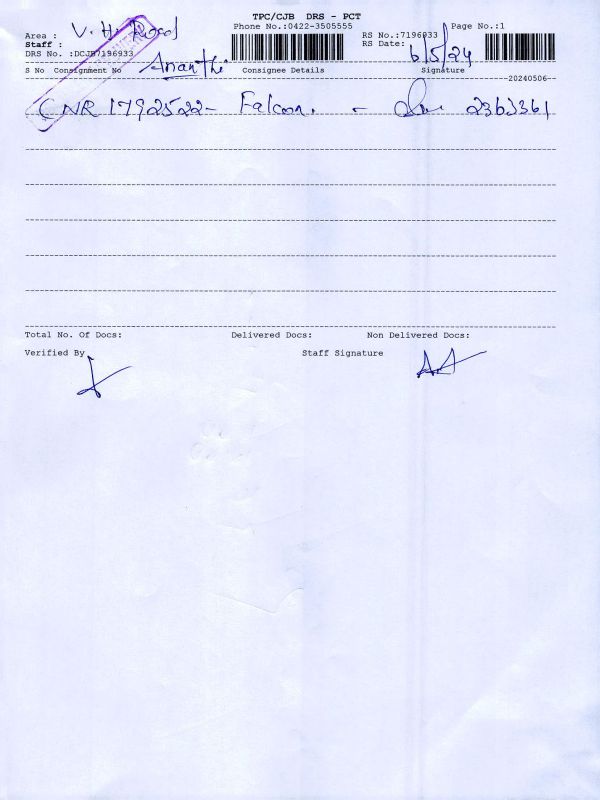 TPC/CJB DRS - PCT
Phone No.:0422-3505555
Page No.:1
Area : V. H. Road
RS No.:7196933
Staff :
RS Date: 6/5/24
DRS No. :DCJB7196933
S No Consignment No Ananthi Consignee Details Signature
20240506
CNR 1792522 - Falcon. - 2363361
Total No. Of Docs: Delivered Docs: Non Delivered Docs:
Verified By Staff Signature